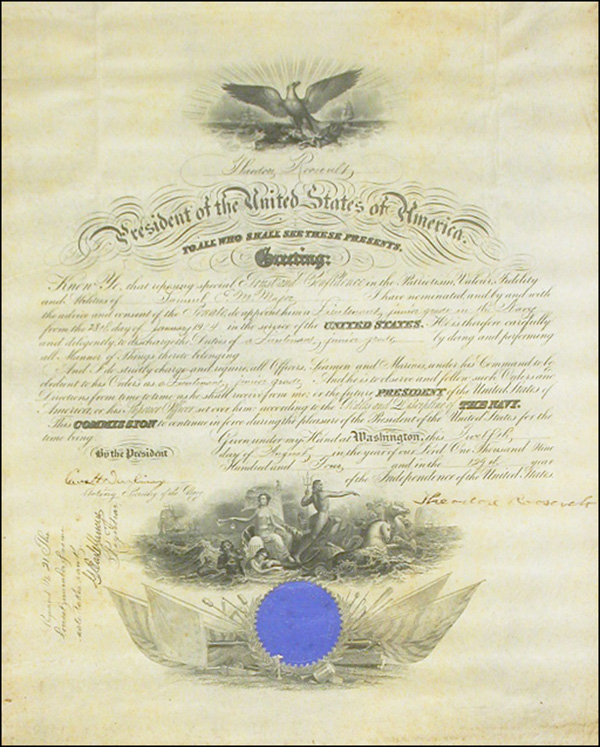 Theodore Roosevelt,
President of the United States of America.
TO ALL WHO SHALL SEE THESE PRESENTS,
Greeting:
Know Ye, that reposing special Trust and Confidence in the Patriotism, Valour, Fidelity
and Abilities of Samuel I have nominated, and by and with
the advice and consent of the Senate, do appoint him a Lieutenant, junior grade in the Navy
from the day of January 1904 in the service of the UNITED STATES. He is therefore carefully
and diligently to discharge the Duties of a Lieutenant, junior grade by doing and performing
all Manner of Things thereto belonging.
And I do strictly charge and require all Officers, Seamen and Marines, under his Command to be
obedient to his Orders as a Lieutenant, junior grade And he is to observe and follow such Orders and
Directions from time to time as he shall receive from me, or the future PRESIDENT of the United States of
America, or his Superior Officer set over him, according to the Rules and Discipline of THE NAVY.
This COMMISSION to continue in force during the pleasure of the President of the United States for the
time being.
Given under my Hand at Washington, this Twelfth
By the President
day of August in the year of our Lord One Thousand Nine
Hundred and Four, and in the 129th year
of the Independence of the United States.
Theodore Roosevelt
Acting Secretary of the Navy